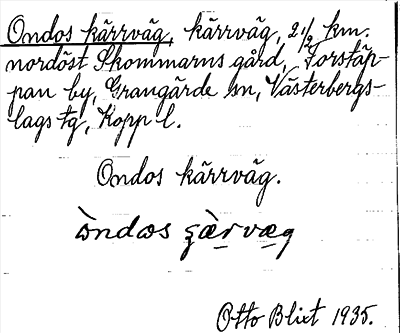 Ondos kärrväg, kärrväg, 2 1/2 km.
nordöst Skommarns gård, Torstäp-
pan by, Grangärde sn, Västerbergs-
lags tg, Kopp l.
Ondos kärrväg.
òndɷs ʂæ̀rvæg
Otto Blixt 1935.